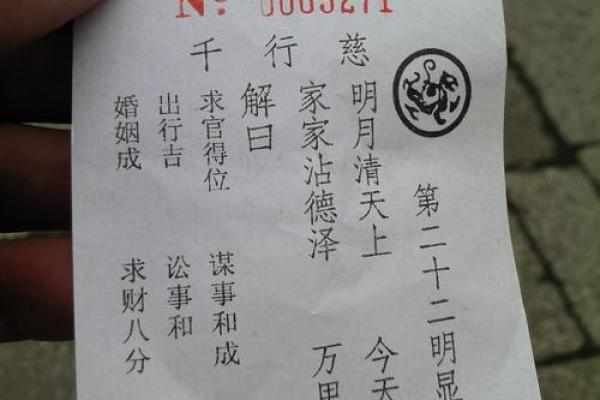 No
慈行千
第二十二明显
明月清天上 今天
家家沾德泽 万
解曰
求官得位 谋事和成
出行吉 讼事和
婚姻成 求财八分